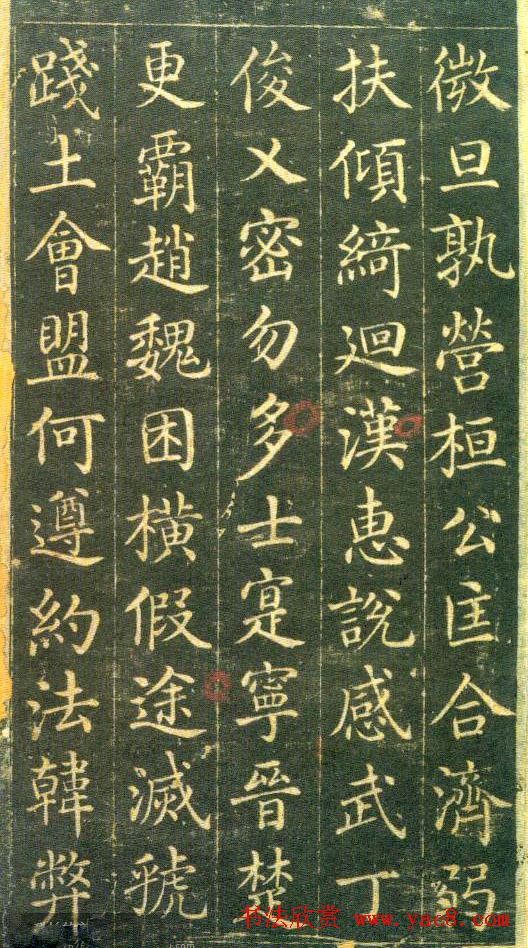 微旦孰營桓公匡合濟弱
扶傾綺迴漢惠說感武丁
俊乂密勿多士寔寧晉楚
更霸趙魏困橫假途滅虢
踐土會盟何遵約法韓弊
书法欣赏 www.yac8.com